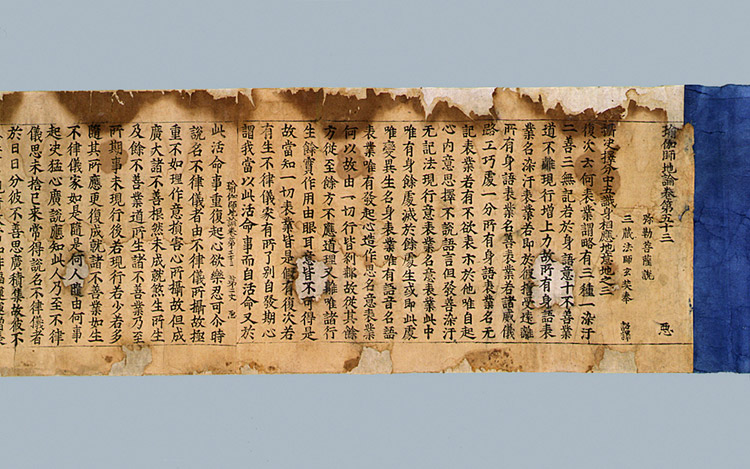 瑜伽師地論卷第五十三 惡
弥勒菩薩說
三蔵法師玄奘奉 詔譯
攝决擇分中五識身相應地意地之三
復次云何表業謂略有三種一染汙
二善三無記若於身語意十不善業
道不離現行增上力故所有身語表
業名染汙表業若即於彼誓受遠離
所有身語表業名善表業若諸威儀
路工巧處一分所有身語表業名无
記表業若有不欲表示於他唯自起
心內意思擇不說語言但發善染汙
无記法現行意表業名意表業此中
唯有身餘處滅於餘處生或即此處
唯變異生名身表業唯有語音名語
表業唯有發起心造作思名意表業
何以故由一切行皆剎那故從其餘
方徙至餘方不應道理又離唯諸行
生餘實作用由眼耳意皆不可得是
故當知一切表業皆是假有復次若
有生不律儀家有所了別自發期心
謂我當以此活命事而自活命又於
瑜伽師地論卷第五十三 第二丈 惡
此活命事重復起心欲樂忍可介時
說名不律儀者由不律儀所攝故極
重不如理作意損害心所攝故但成
廣大諸不善根然未成就煞生所生
及餘不善業道所生諸不善業乃至
所期事未現行後若現行若少若多
隨其所應更復成就諸不善業如生
不律儀家如是隨是何人隨由何事
起决猛心廣說應知此人乃至不律
儀思未捨已來常得說名不律儀者
於日日分彼不善思廣積集故彼不